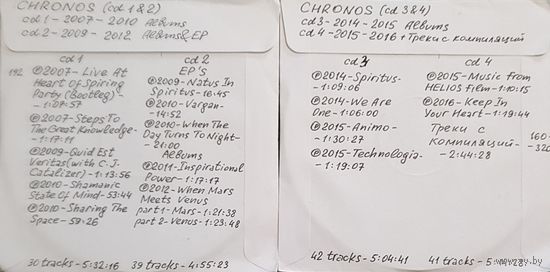 CHRONOS (cd 1&2)
cd 1-2007-2010 Albums
cd 2-2009-2012 Albums&EP
cd 1
192
℗2007-Live At
Heart Of Spiring
Party (Bootleg)-
-1:07:57
℗2007-Steps To
The Great Knowledge-
-1:17:11
℗2009-Quid Est
Veritas(with C.J.
Catalizer)-1:13:56
℗2010-Shamanic
State Of Mind-53:44
℗2010-Sharing The
Space-59:26
30 tracks-5:32:16
cd 2
EP'S
℗2009-Natus In
Spiritus-18:45
℗2010-Vargan-
-14:52
℗2010-When The
Day Turns To Night-
-21:00
Albums
℗2011-Inspirational
Power-1:17:17
℗2012-When Mars
Meets Venus
part 1-Mars-1:21:38
part 2-Venus-1:23:48
39 tracks-4:55:23
CHRONOS (cd 3&4)
cd 3-2014-2015 Albums
cd 4-2015-2016+Треки с компиляций
cd 3
℗2014-Spiritus-
-1:09:06
℗2014-We Are
One-1:06:00
℗2015-Animo-
-1:30:27
℗2015-Technologia-
-1:19:07
42 tracks-5:04:41
cd 4
℗2015-Music From
HELIOS Film-1:10:15
℗2016-Keep In
Your Heart-1:19:44
Треки с
Компиляций-
-2:44:28
160-
-320
41 tracks-5